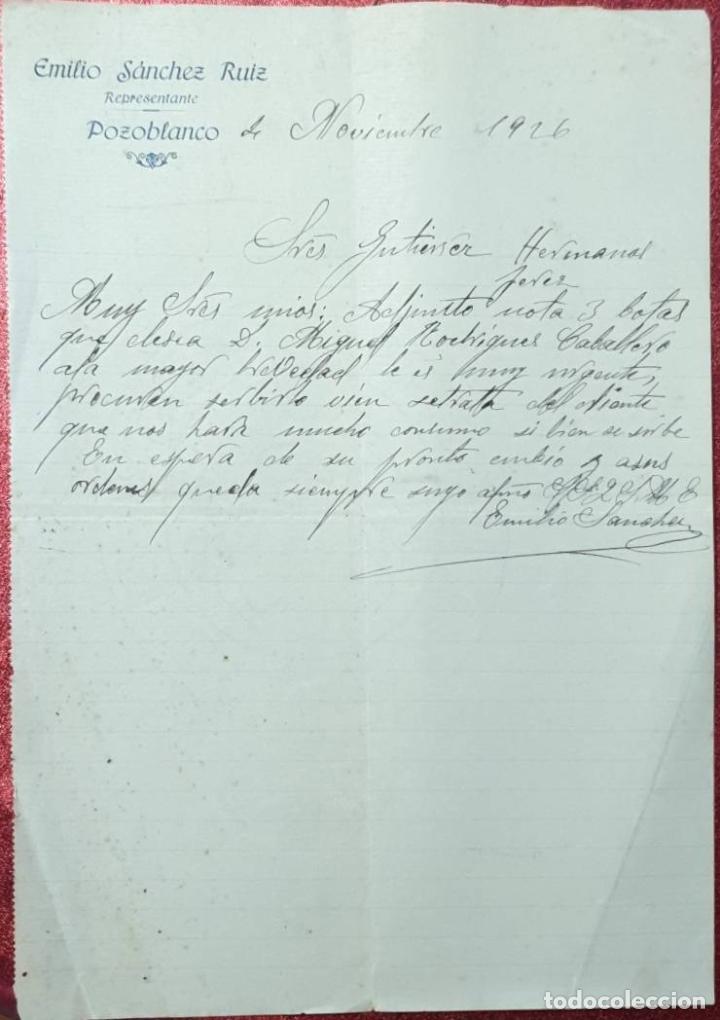 Emilio Sánchez Ruiz
Representante
Pozoblanco de Noviembre 1926
Sres Gutierrez Hermanos
Jerez
Muy Sres mios: Adjunto nota 3 botas
que desea D. Miguel Rodrigues Caballero
ala mayor brevedad le es muy urgente,
procuren serbirlo vien setrata del cliente
que nos hara mucho consumo si bien se sirbe
En espera de su pronto embio y asus
ordenes queda siempre suyo afmo
Emilio Sanchez
todocoleccion
todocoleccion.net